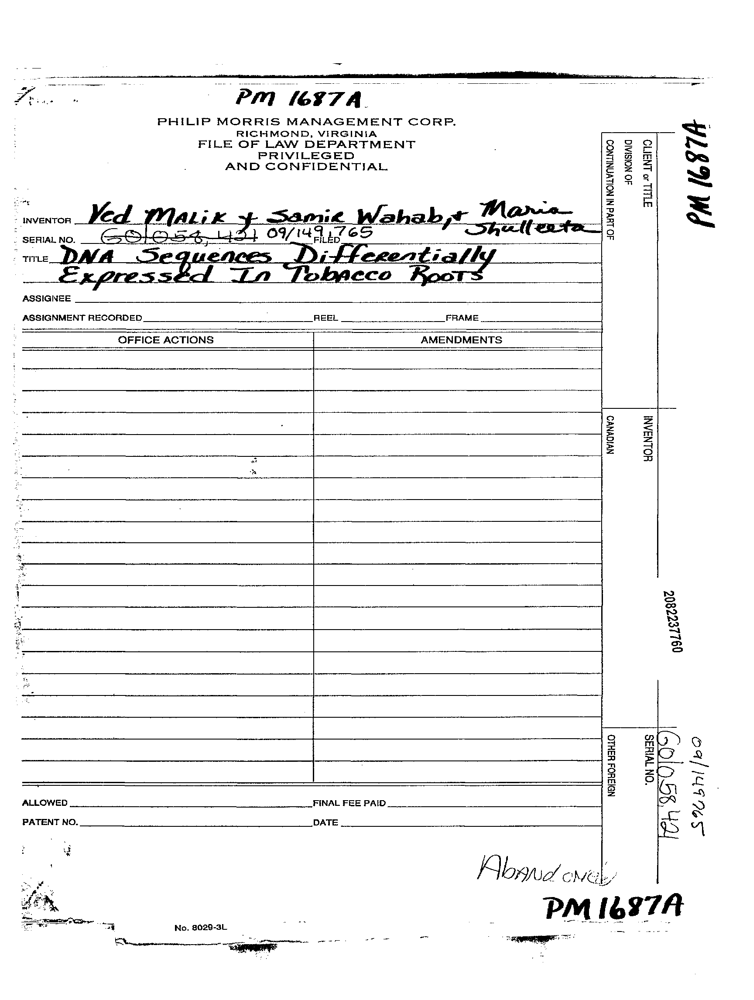 PM 1687A
PHILIP MORRIS MANAGEMENT CORP.
RICHMOND, VIRGINIA
FILE OF LAW DEPARTMENT
PRIVILEGED
AND CONFIDENTIAL
INVENTOR Ved Malik + Samir Wahab, + Maria Shulleeta
SERIAL NO. 60/058,421 09/149,765 FILED
TITLE DNA Sequences Differentially
Expressed In Tobacco Roots
ASSIGNEE
ASSIGNMENT RECORDED REEL FRAME
OFFICE ACTIONS AMENDMENTS
ALLOWED FINAL FEE PAID
PATENT NO. DATE
Abandoned
PM 1687A
No. 8029-3L
PM 1687A
CLIENT or TITLE
DIVISION OF
CONTINUATION IN PART OF
INVENTOR
CANADIAN
2082237760
SERIAL NO.
60/058,421
09/149765
OTHER FOREIGN